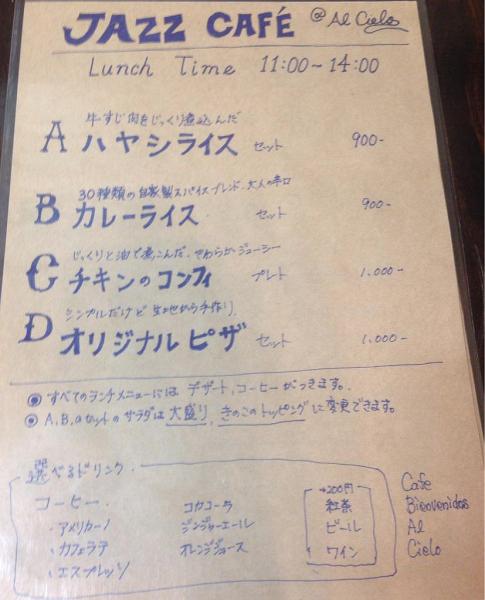 JAZZ CAFÉ @ Al Cielo
Lunch Time 11:00~14:00
牛すじ肉をじっくり煮込んだ
A ハヤシライス セット 900-
30種類の自家製スパイスブレンド、大人の辛口
B カレーライス セット 900-
じっくりと油で煮こんだ、やわらかジューシー
C チキンのコンフィ プレト 1,000-
シンプルだけど生地から手作り
D オリジナルピザ セット 1,000-
◉ すべてのランチメニューには デザート、コーヒーがつきます。
◉ A,B,セットのサラダは大盛り、きのこのトッピングに変更できます。
選べるドリンク
コーヒー
・アメリカーノ
・カフェラテ
・エスプレッソ
コカコーラ
ジンジャーエール
オレンジジュース
+200円
紅茶
ビール
ワイン
Cafe
Bienvenidos
Al
Cielo